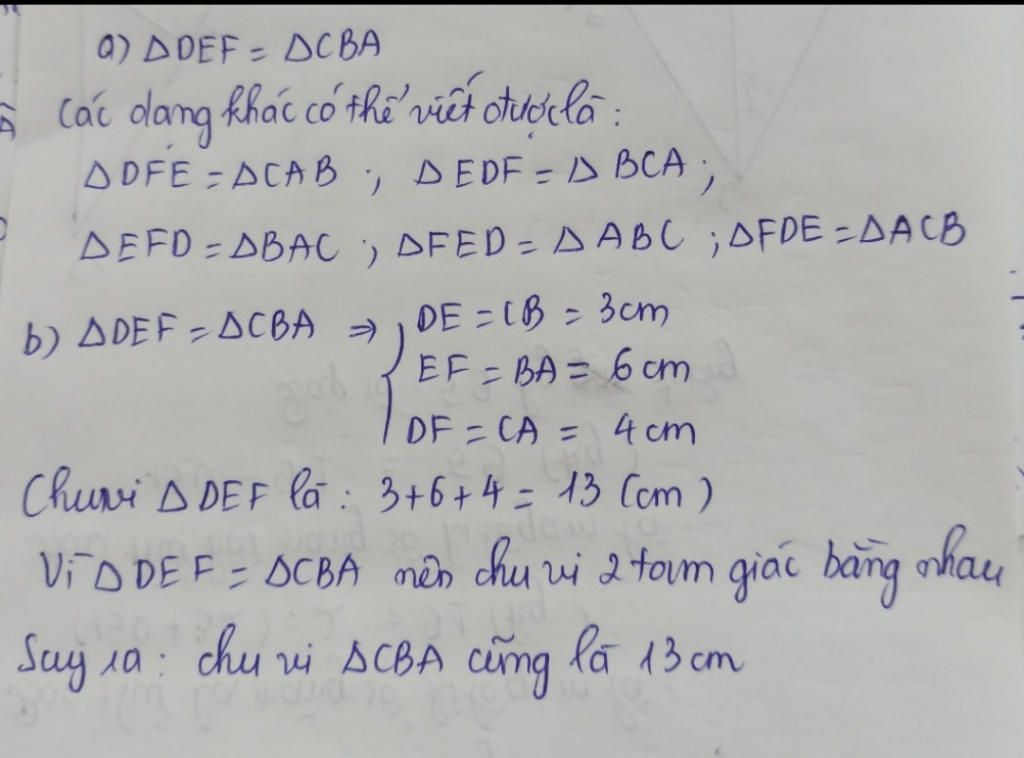 a) △DEF = △CBA
Các dạng khác có thể viết được là:
△DFE = △CAB ; △EDF = △BCA ;
△EFD = △BAC ; △FED = △ABC ; △FDE = △ACB
b) △DEF = △CBA ⇒ { DE = CB = 3cm
EF = BA = 6cm
DF = CA = 4cm
Chu vi △DEF là: 3+6+4 = 13 (cm)
Vì △DEF = △CBA nên chu vi 2 tam giác bằng nhau
Suy ra: chu vi △CBA cũng là 13cm